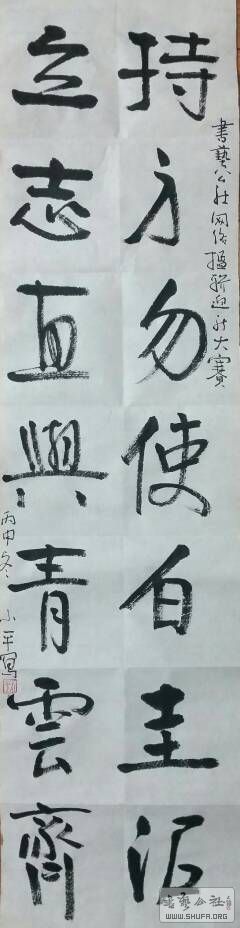 書藝公社网络聯迎大賽
持身勿使白圭玷
立志直與青雲齊
丙申冬小平寫
書藝公社
WWW.SHUFA.ORG